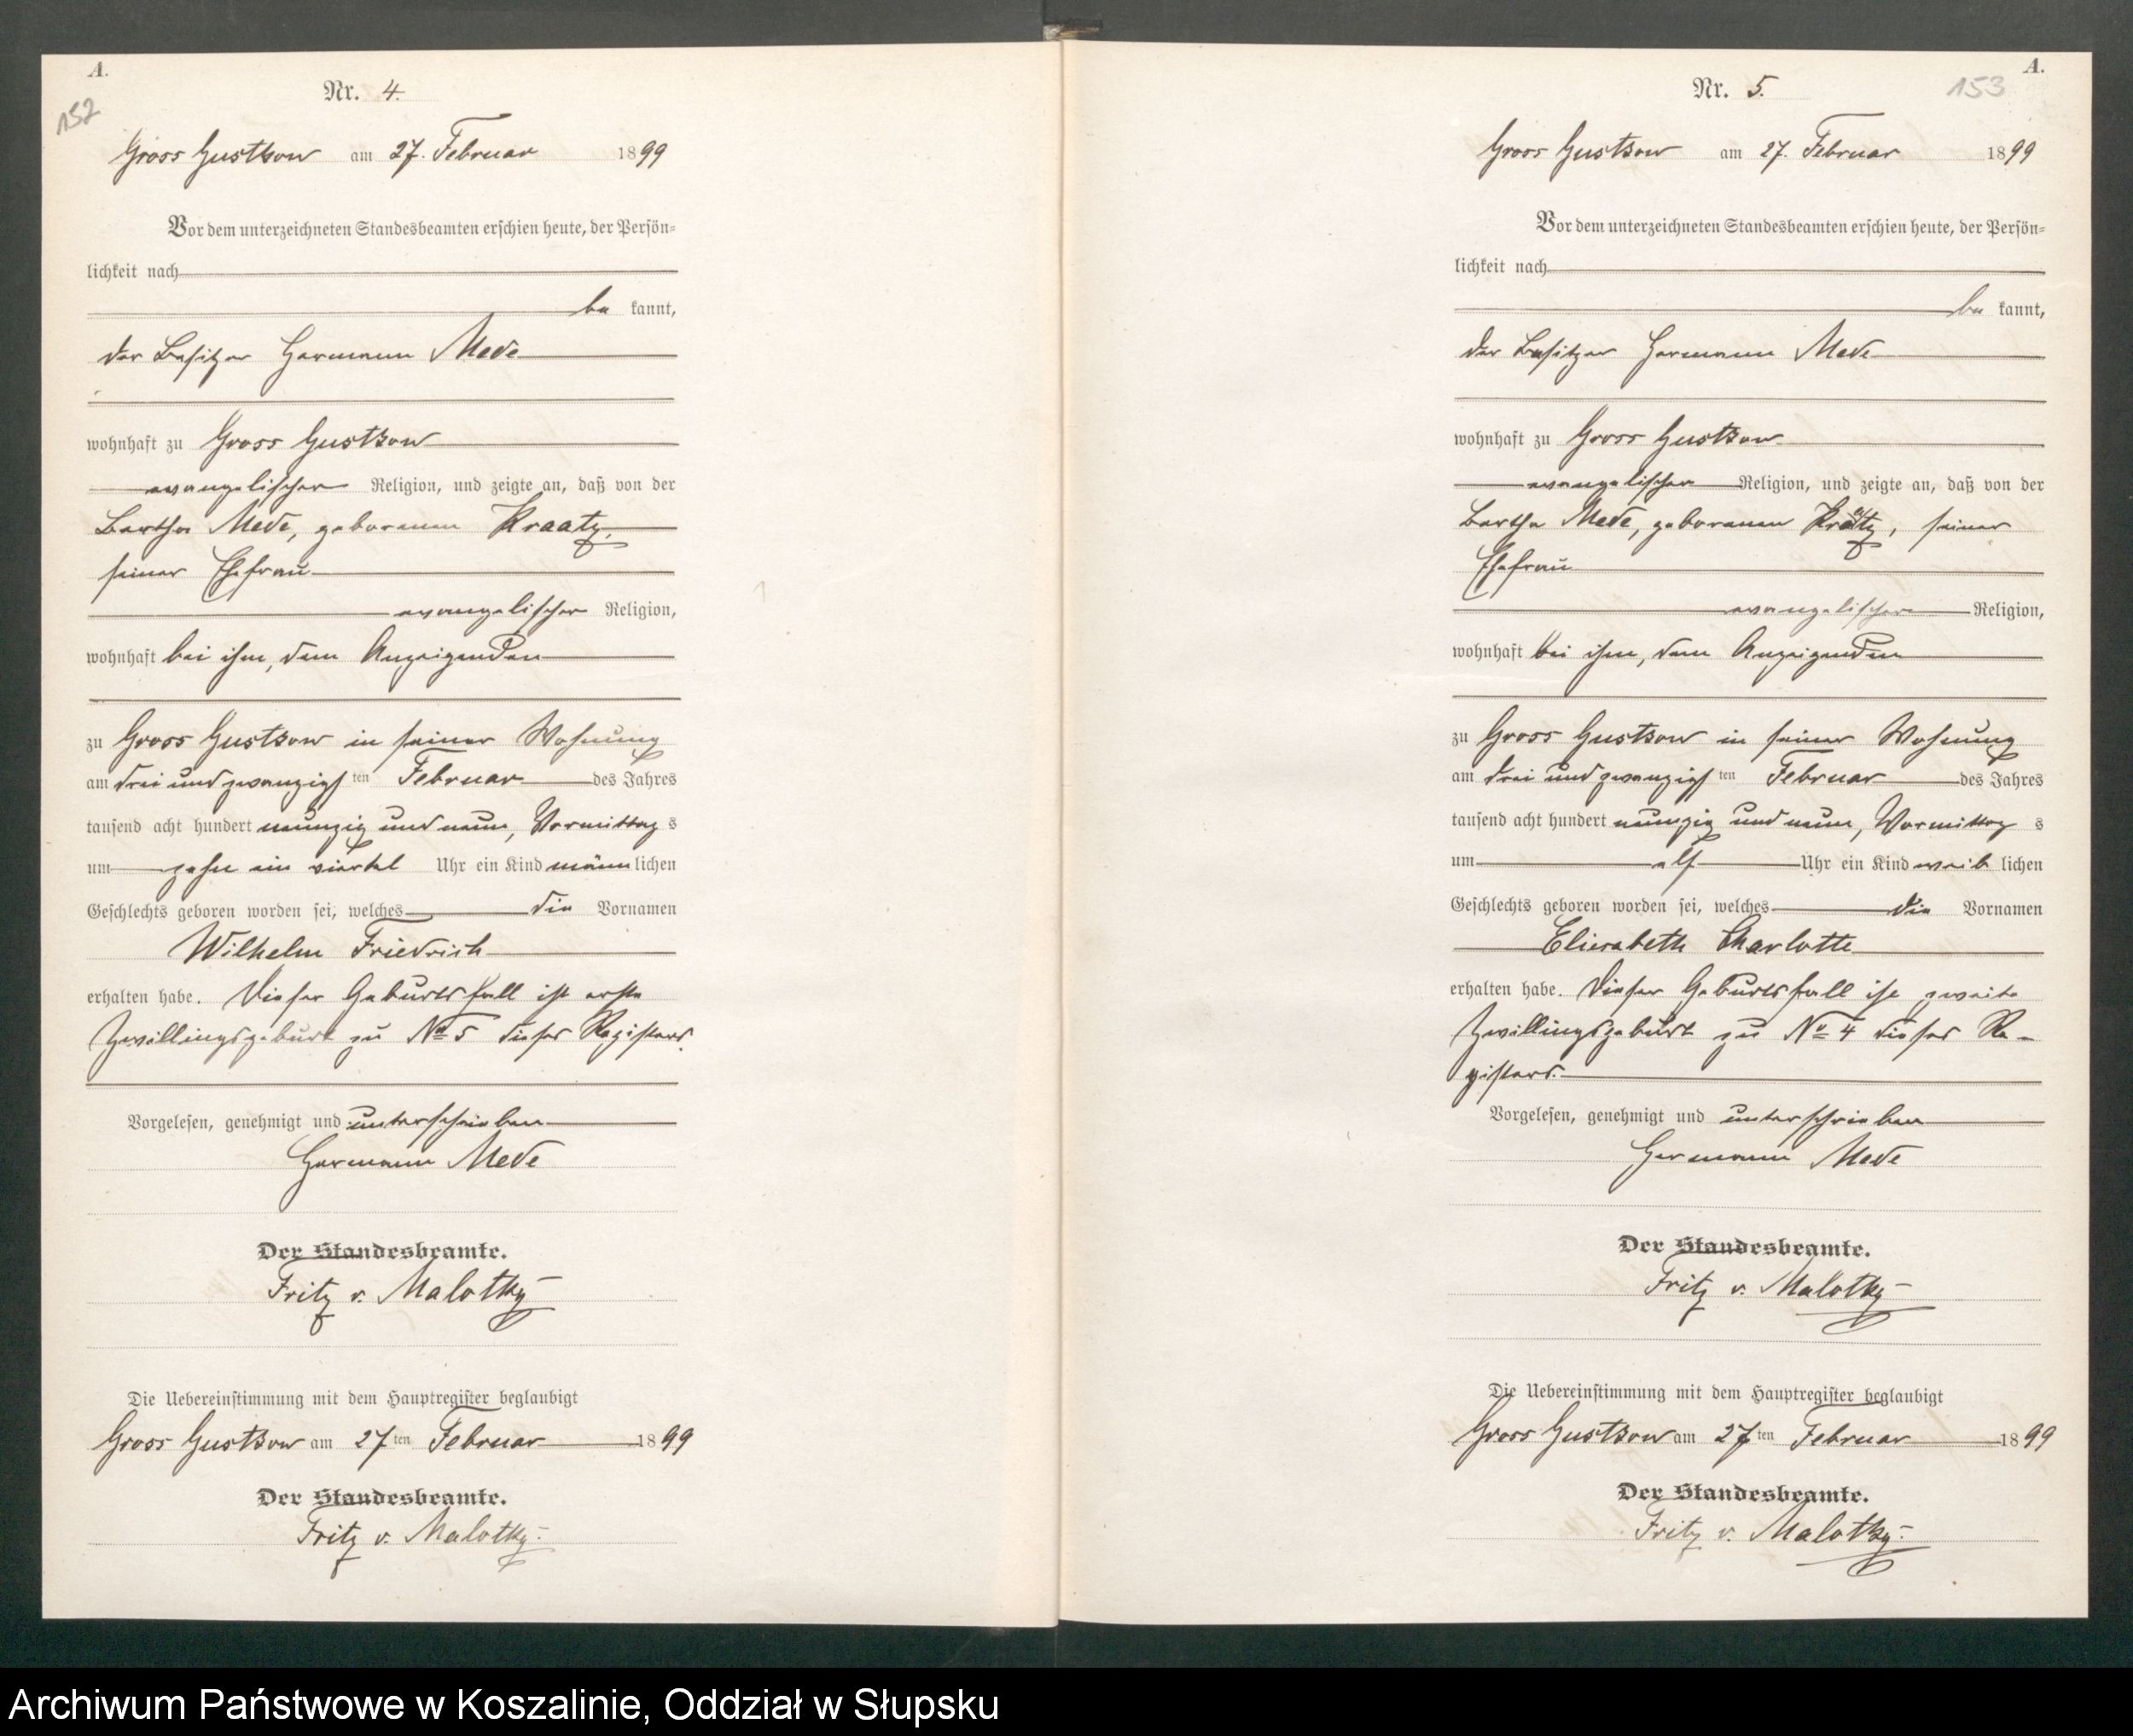 A.
152
Nr. 4.
Gross Gustkow am 27. Februar 1899
Vor dem unterzeichneten Standesbeamten erschien heute, der Persön-
lichkeit nach
be kannt,
der Besitzer Hermann Mede
wohnhaft zu Gross Gustkow
evangelischer Religion, und zeigte an, daß von der
Bertha Mede, geborenen Kraatz,
seiner Ehefrau
evangelischer Religion,
wohnhaft bei ihm, dem Anzeigenden
zu Gross Gustkow in seiner Wohnung
am drei und zwanzigsten Februar des Jahres
tausend acht hundert neunzig und neun, Vormittags
um zehn ein viertel Uhr ein Kind männlichen
Geschlechts geboren worden sei, welches die Vornamen
Wilhelm Friedrich
erhalten habe. Dieser Geburtsfall ist erste
Zwillingsgeburt zu No 5 dieses Registers.
Vorgelesen, genehmigt und unterschrieben
Hermann Mede
Der Standesbeamte.
Fritz v. Malotky
Die Uebereinstimmung mit dem Hauptregister beglaubigt
Gross Gustkow am 27ten Februar 1899
Der Standesbeamte.
Fritz v. Malotky.
A.
153
Nr. 5.
Gross Gustkow am 27. Februar 1899
Vor dem unterzeichneten Standesbeamten erschien heute, der Persön-
lichkeit nach
be kannt,
der Besitzer Hermann Mede
wohnhaft zu Gross Gustkow
evangelischer Religion, und zeigte an, daß von der
Bertha Mede, geborenen Kraatz, seiner
Ehefrau
evangelischer Religion,
wohnhaft bei ihm, dem Anzeigenden
zu Gross Gustkow in seiner Wohnung
am drei und zwanzigsten Februar des Jahres
tausend acht hundert neunzig und neun, Vormittags
um elf Uhr ein Kind weiblichen
Geschlechts geboren worden sei, welches die Vornamen
Eliesabeth Charlotte
erhalten habe. Dieser Geburtsfall ist zweite
Zwillingsgeburt zu No 4 dieses Re-
gisters.
Vorgelesen, genehmigt und unterschrieben
Hermann Mede
Der Standesbeamte.
Fritz v. Malotky
Die Uebereinstimmung mit dem Hauptregister beglaubigt
Gross Gustkow am 27ten Februar 1899
Der Standesbeamte.
Fritz v. Malotky.
Archiwum Państwowe w Koszalinie, Oddział w Słupsku